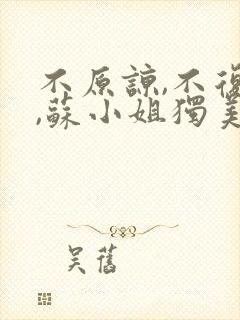 不原諒,不復
,蘇小姐獨美
吳舊